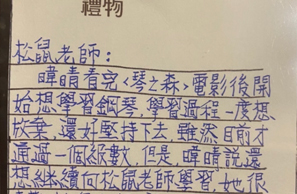 禮物
松鼠老師：
暐晴看完〈琴之森〉電影後開
始想學習鋼琴，學習過程一度想
放棄，還好堅持下去，雖然目前才
通過一個級數，但是，暐晴說還
想繼續向松鼠老師學習，她很